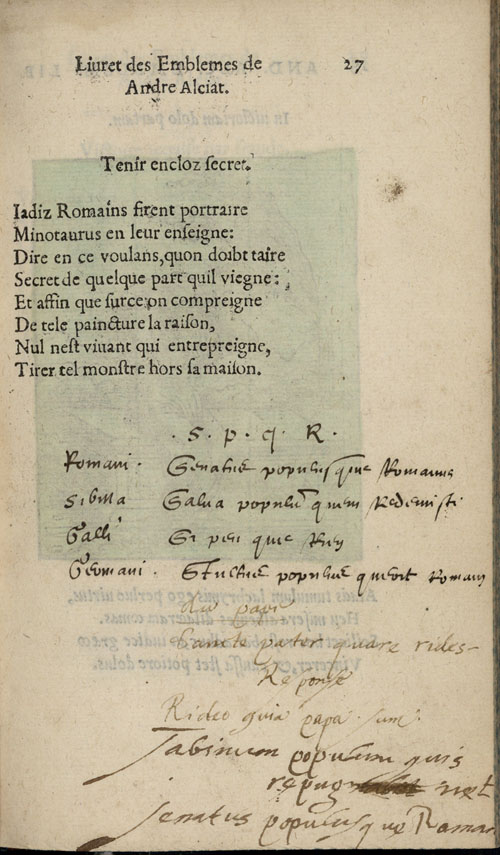 Liuret des Emblemes de 27
Andre Alciat.
Tenir encloz secret.
Iadiz Romains firent portraire
Minotaurus en leur enseigne:
Dire en ce voulans, quon doibt taire
Secret de quelque part quil viegne:
Et affin que surce on compreigne
De tele paincture la raison,
Nul nest viuant qui entrepreigne,
Tirer tel monstre hors sa maison.
. S . p . q . R .
Romani . Senatus populusque Romanus
Sibilla Salua populũ quem Redemisti
Galli Si peu que Rien
Germani . Stultus populus querit Romam
du pape
Sancte pater quare rides
Reponse
Rideo quia papa sum.
Sabinum populum quis
repugnabit net
Senatus populusque Roman